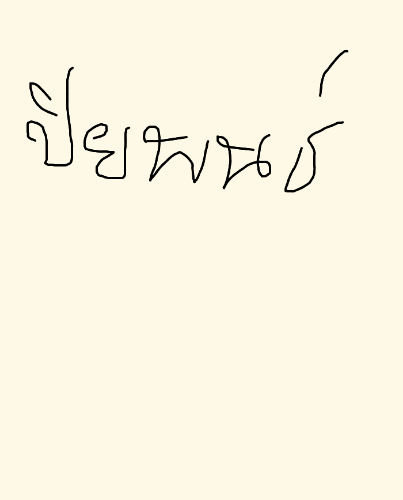 ปิยพนธ์